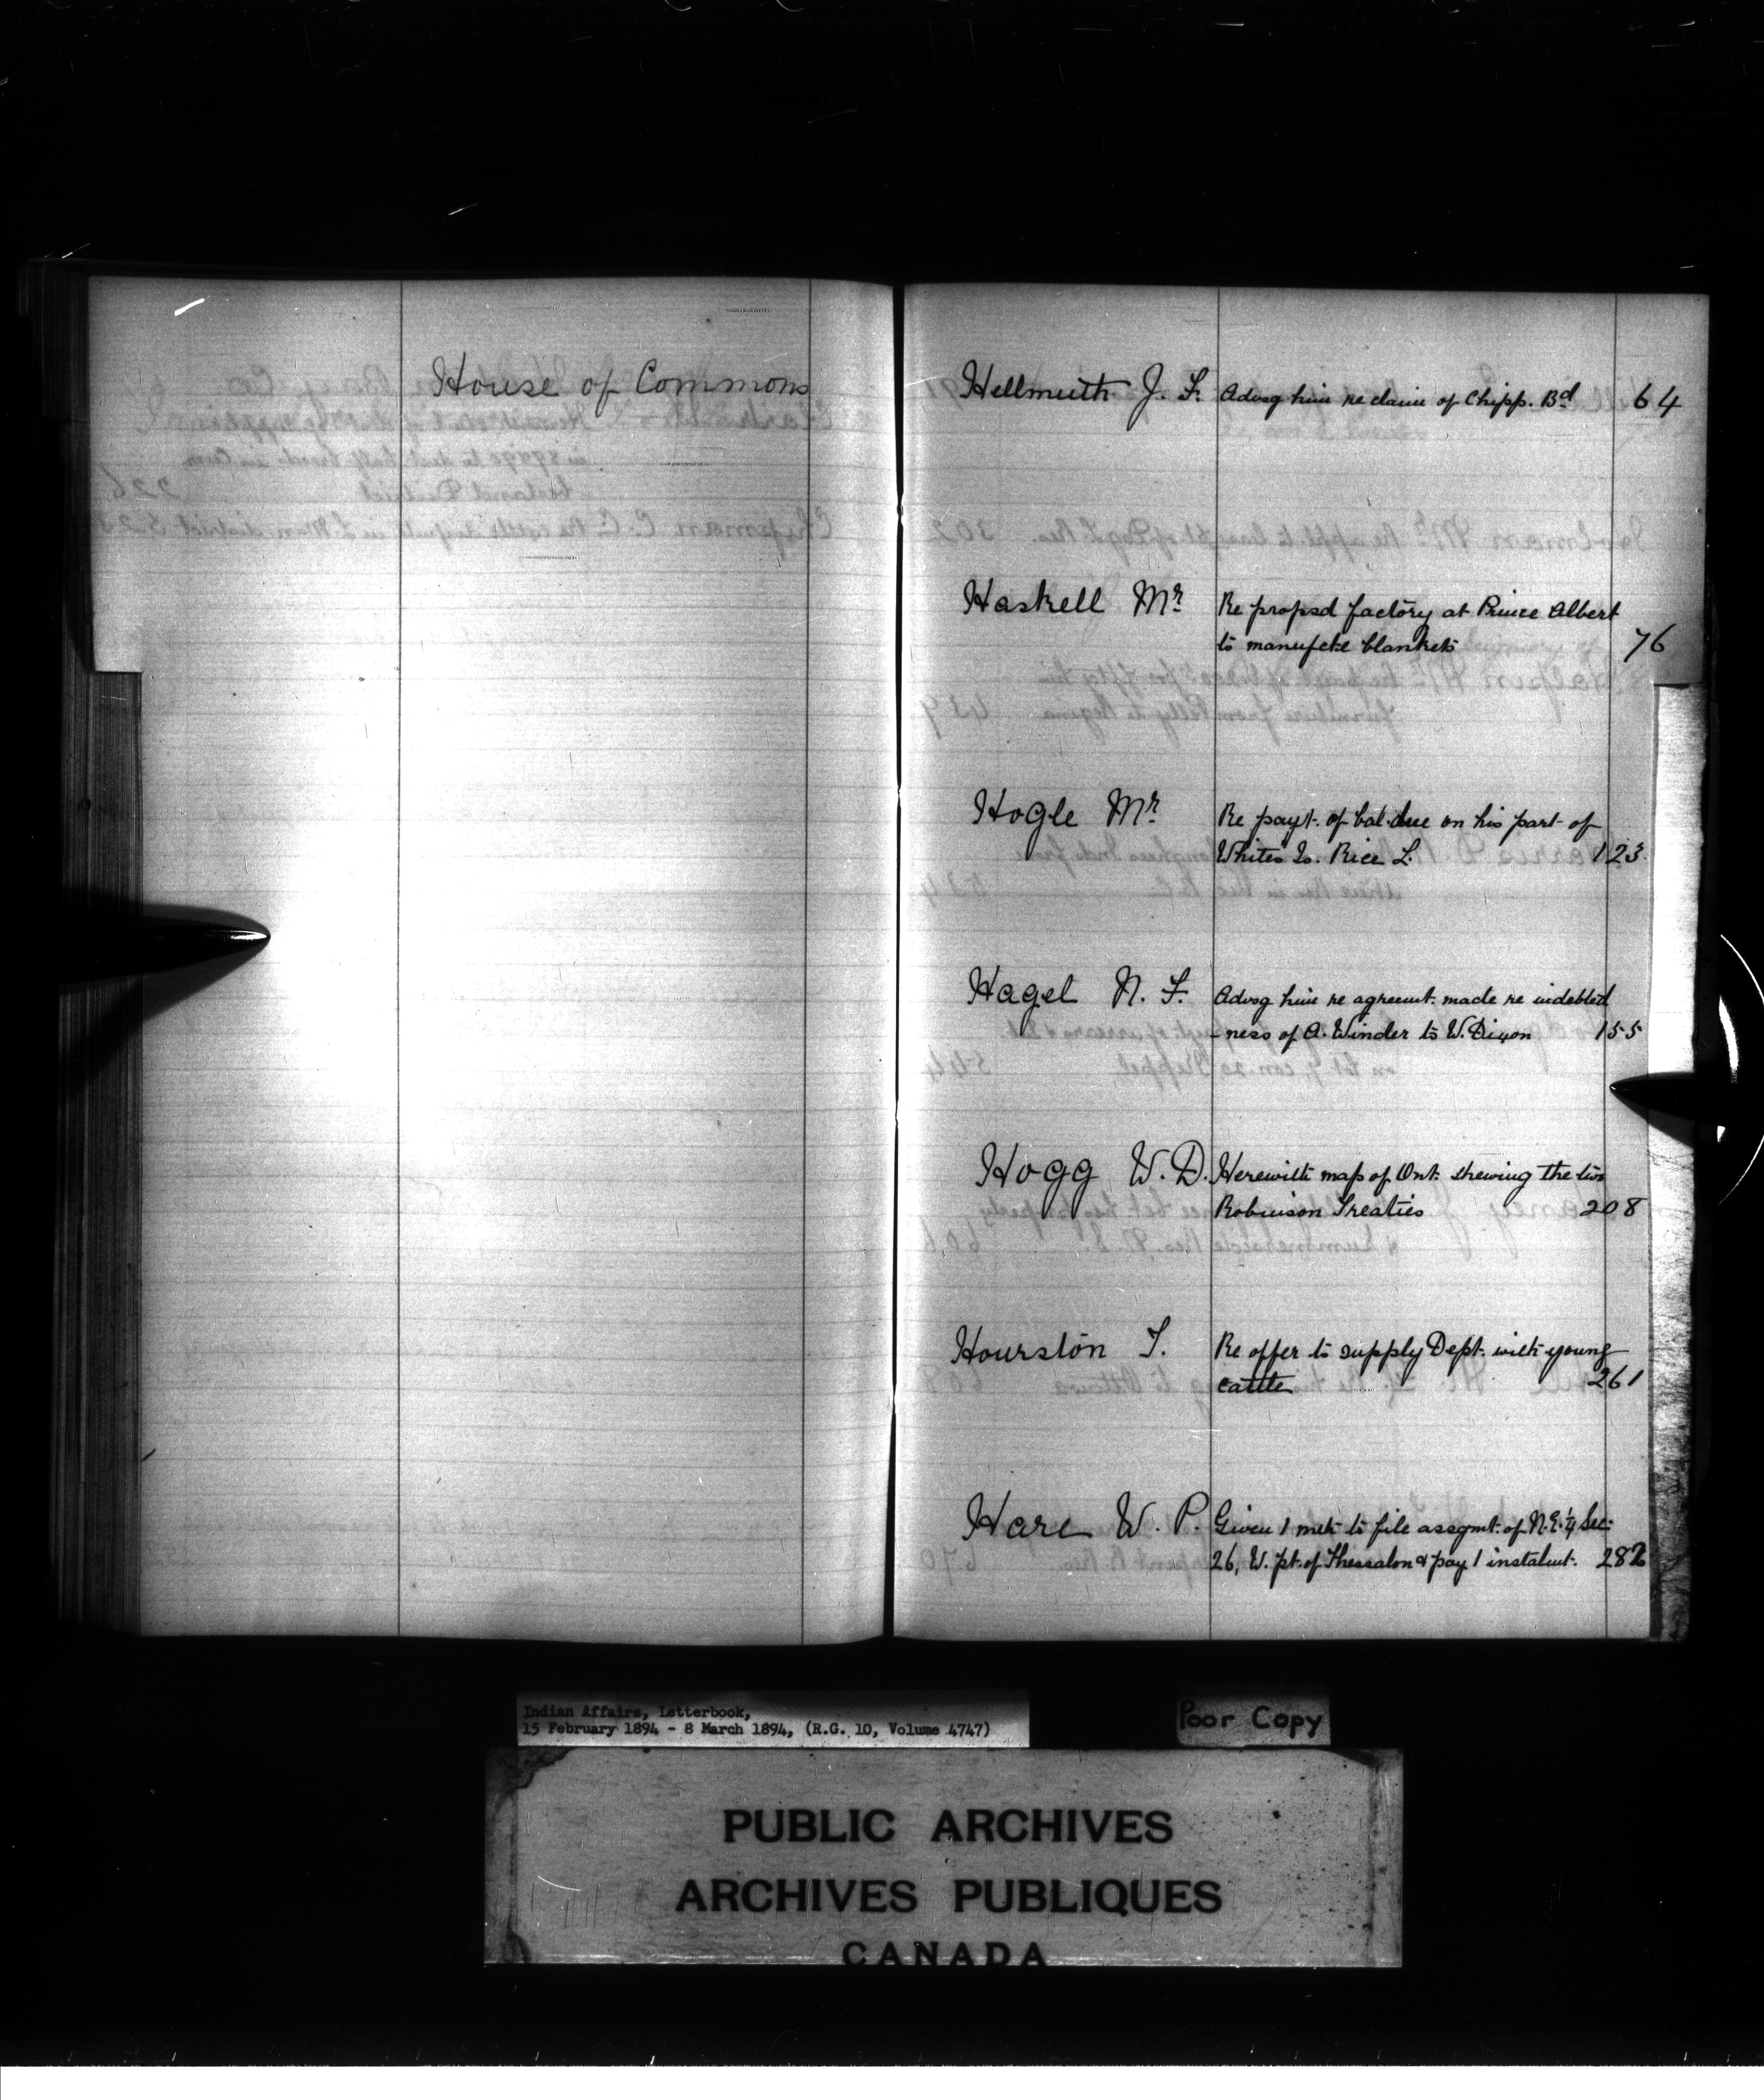 House of Commons
Hellmuth J. F. Advsg him re claim of Chipp. Bd 64
Haskell Mr Re propsd factory at Prince Albert
to manufcte blankets 76
Hogle Mr Re payt. of bal. due on his part of
Whites Is. Rice L. 123
Hagel N. F. Advsg him re agreemt. made re indebted
-ness of A. Winder to W. Dixon 155
Hogg W. D. Herewith map of Ont. shewing the two
Robinson Treaties 208
Hourston T. Re offer to supply Dept. with young
cattle 261
Hare W. P. Given 1 mth to file assgmt. of N.E. 1/4 Sec.
26, W. pt. of Thessalon & pay 1 instalmt. 282
Indian Affairs, Letterbook,
15 February 1894 - 8 March 1894, (R.G. 10, Volume 4747)
Poor Copy
PUBLIC ARCHIVES
ARCHIVES PUBLIQUES
CANADA